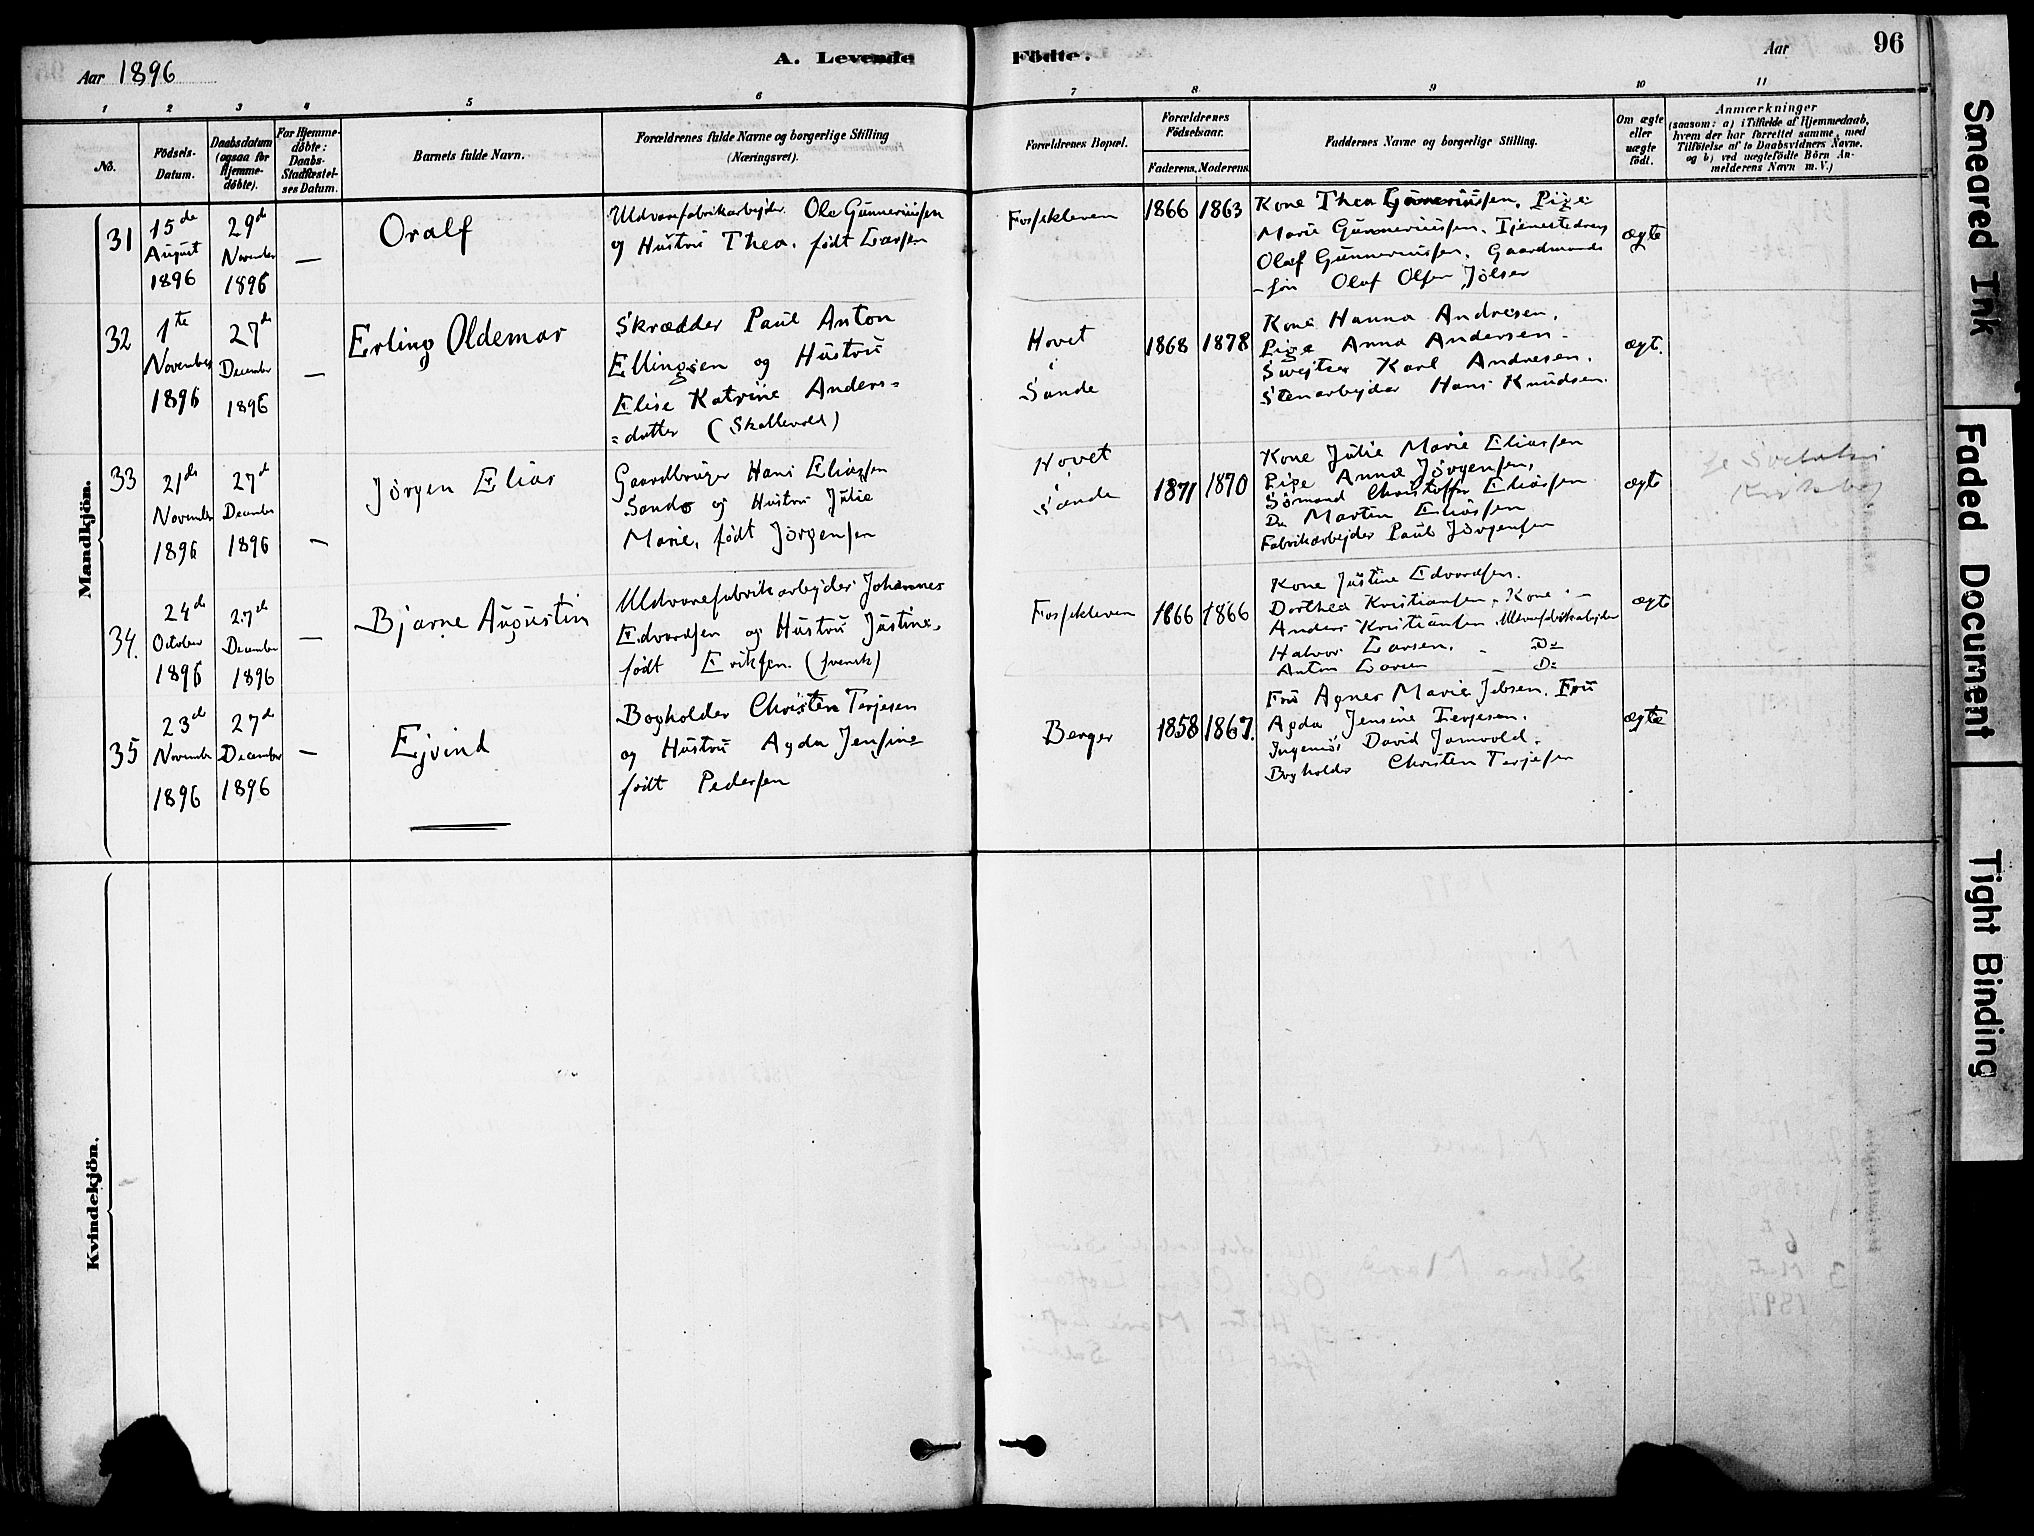 Aar 1896
A. Levende Födte.
Aar 96
1 2 3 4 5 6 7 8 9 10 11
No.
Födsels-Datum.
Daabsdatum (ogsaa for Hjemme-döbte).
For Hjemme-döbte: Daabs-Stadfæstel-ses Datum.
Barnets fulde Navn.
Forældrenes fulde Navne og borgerlige Stilling
(Næringsvei).
Forældrenes Bopæl.
Forældrenes Födselsaar.
Faderens. Moderens.
Faddernes Navne og borgerlige Stilling.
Om ægte eller uægte födt.
Anmærkninger
(saasom: a) i Tilfælde af Hjemmedaab,
hvem der har forrettet samme, med
Tilföielse af to Daabsvidners Navne.
og b) ved uægtefödte Börn An-
melderens Navn m.V.)
Mandkjön.
31
15de August 1896
29de November 1896
—
Oralf
Uldvarefabrikarbejder Ole Gunneriussen
og Hustru Thea, født Larssen
Fossekleven
1866 1863
Kone Thea Gunneriussen, Pige
Marie Gunneriussen. Tjenestedreng
Olaf Gunneriussen. Gaardmands
-søn Olaf Olsen Jølsen
ægte
32
1te November 1896
27de December 1896
—
Erling Oldemar
Skrædder Paul Anton
Ellingsen og Hustru
Elise Katrine Anders=
=datter (Skallevold)
Hovet
Sande
1868 1878
Kone Hanna Andresen.
Pige Anna Andersen.
Svejtser Karl Andresen.
Stenarbejder Hans Knudsen.
ægt.
33
21de November 1896
27de December 1896
—
Jörgen Elias
Gaardbruger Hans Eliassen
Sando og Hustru Julie
Marie, født Jörgensen
Hovet
Sande
1871 1870
Kone Julie Marie Eliassen
Pige Anna Jörgensen,
Sømand Christoffer Eliassen
Do Martin Eliassen
Fabrikarbejder Paul Jörgensen
ægte
34.
24de October 1896
27de December 1896
—
Bjarne Augustin
Uldvarefabrikarbejder Johannes
Edvardsen og Hustru Justine,
født Eriksen. (svensk)
Fossekleven
1866 1866
Kone Justine Edvardsen.
Dorthea Kristiansen, Kone. —
Anders Kristiansen, Uldvarefabrikarbejder
Halvor Larsen. - Do
Anton Larsen - Do
ægte
35
23de November 1896
27de December 1896
—
Ejvind
Bogholder Christen Terjesen
og Hustru Agda Jensine
født Pedersen
Berger
1858 1867.
Fru Agnes Marie Jebsen. Fru
Agda Jensine Terjesen.
Ingeniør David Jamvold.
Bogholder Christen Terjesen
ægte
Kvindekjön.
Smeared Ink
Faded Document
Tight Binding